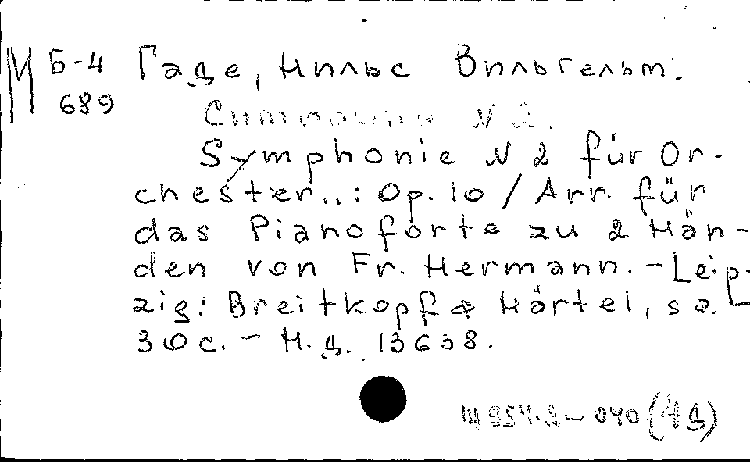 М Б-4 Гаде, Нильс Вильгельм.
689
Симфония N 2.
Symphonie N 2 für Or-
chester..: Op. 10 / Arr. für
das Pianoforte zu 2 Hän-
den von Fr. Hermann. - Leip-
zig: Breitkopf & Härtel, s.a. -
30 с. - Н.д. 13638.
(4д)